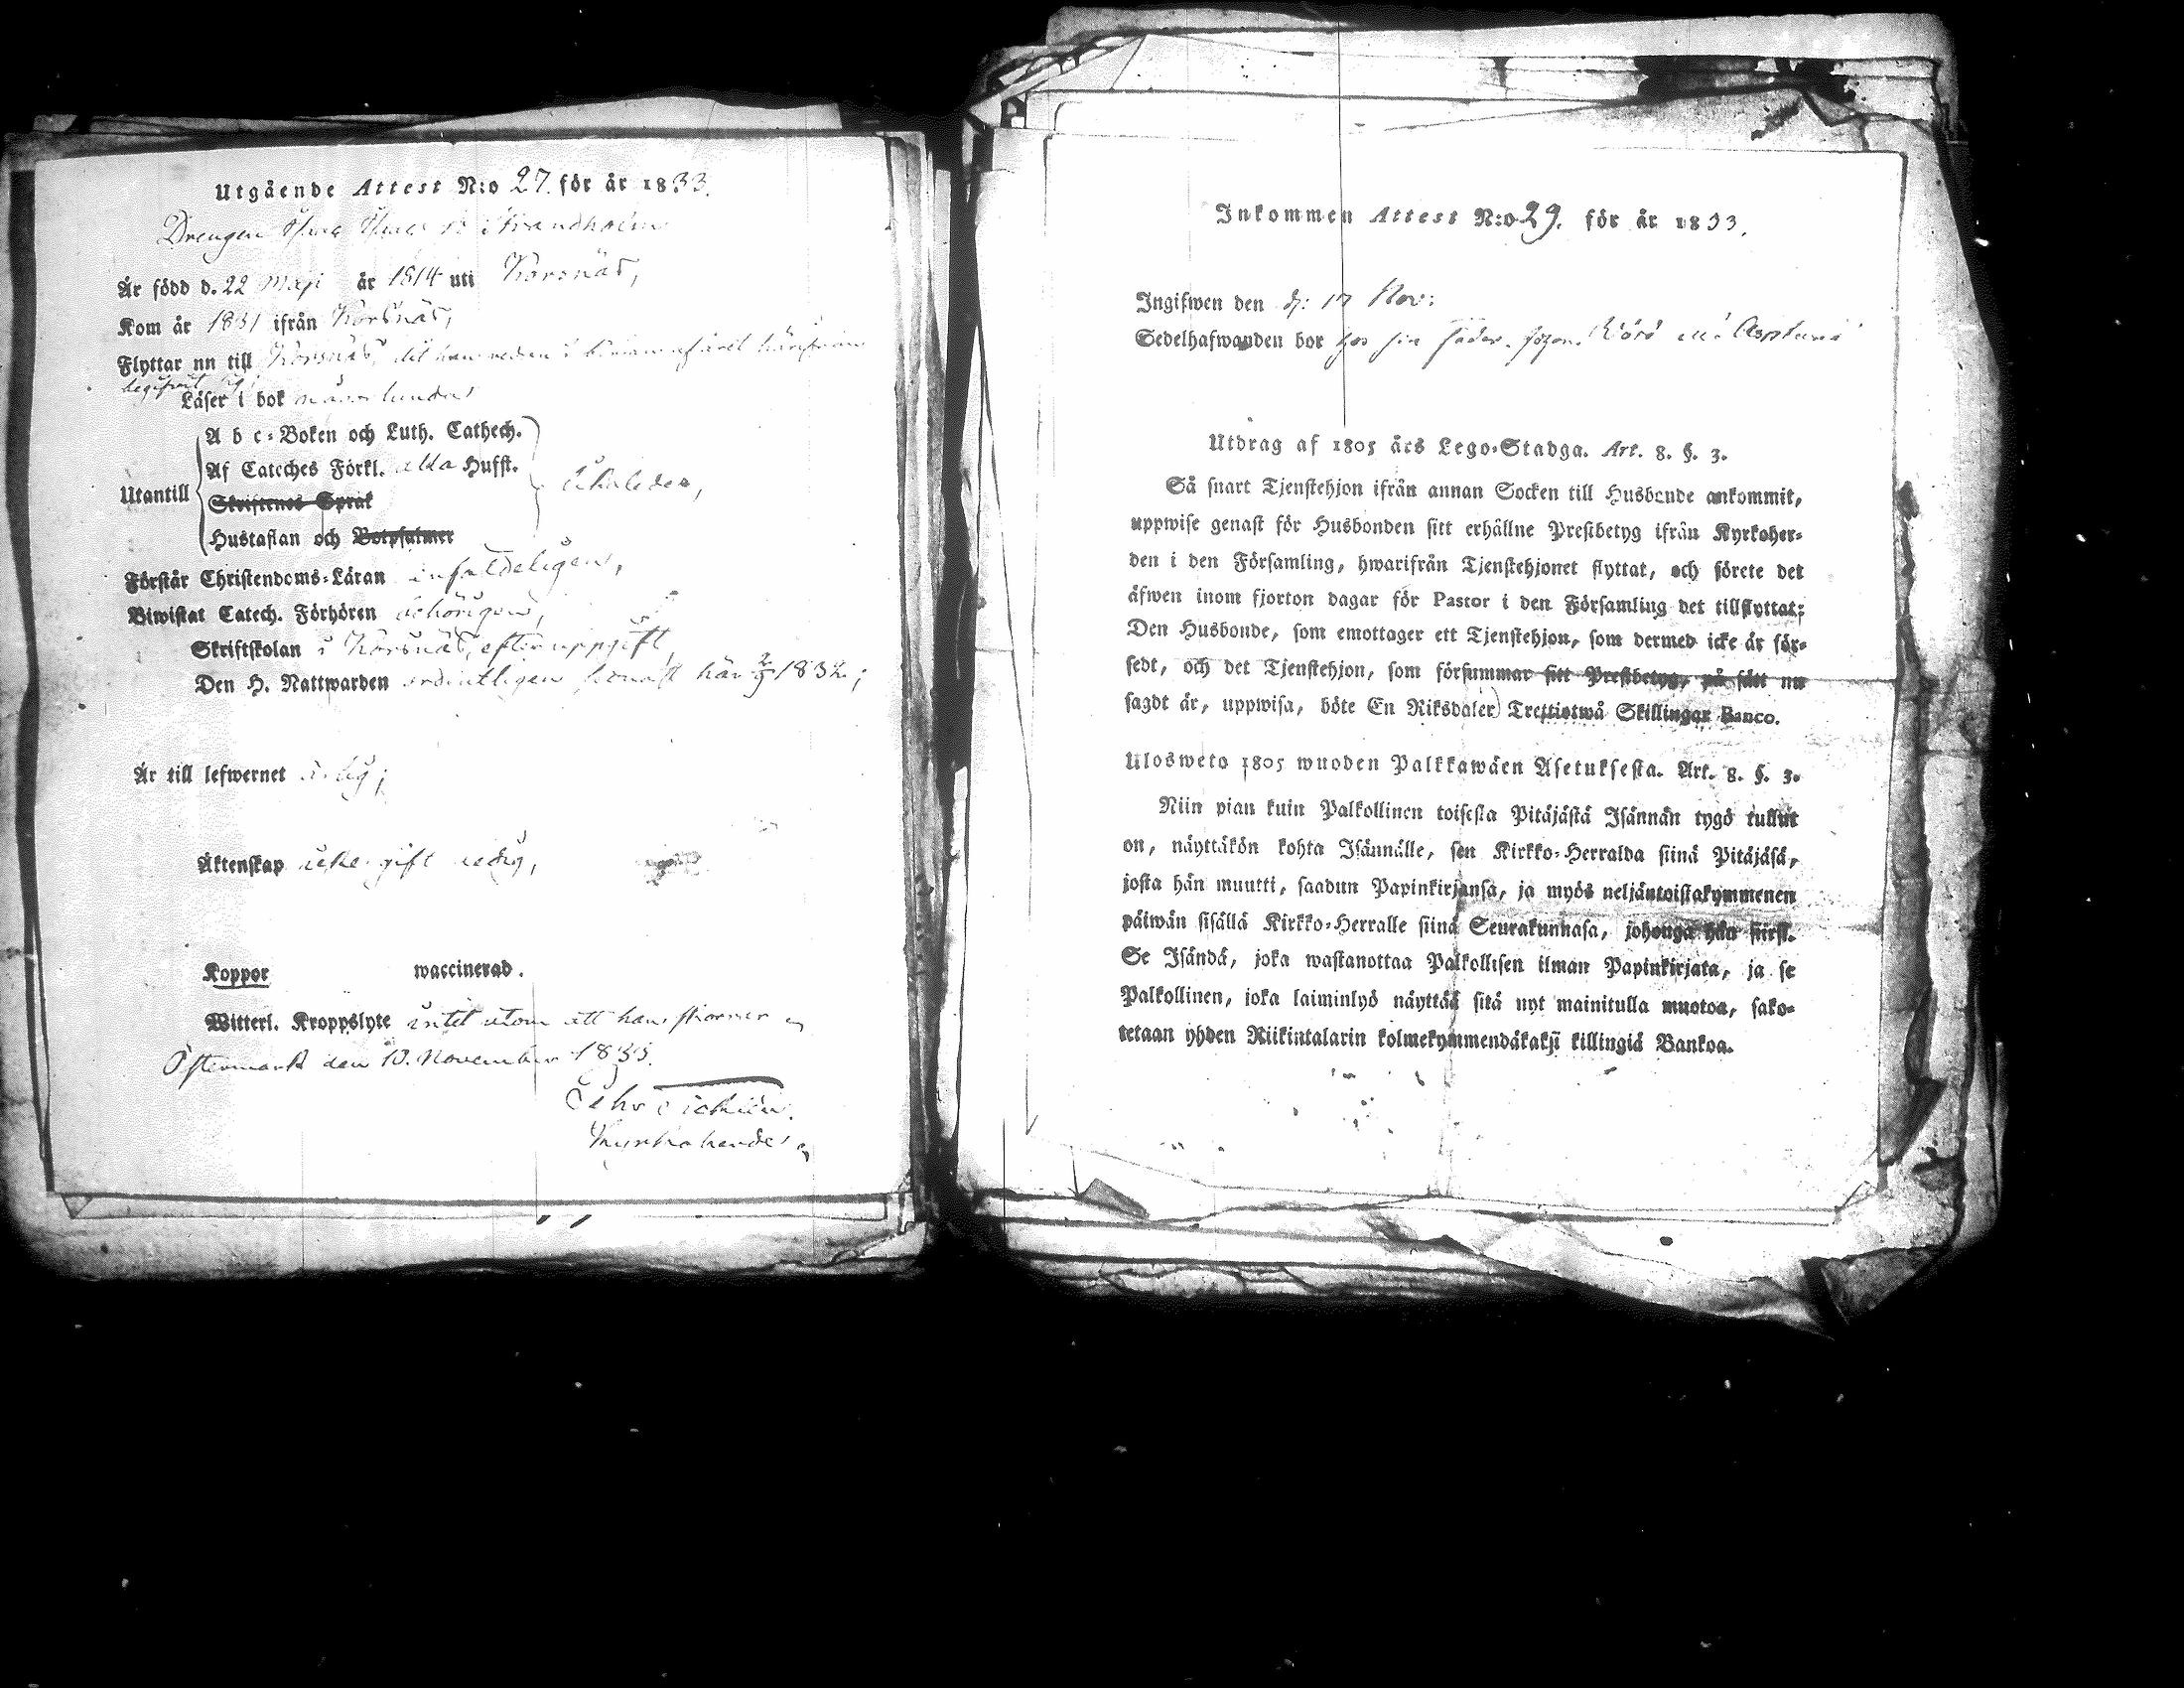 Utgående Attest N:o 27. för år 1833.
Drengen
Är född d. 22 Maji är 1814 uti Korsnäs,
Kom år 1831 ifrån Korsnäs,
Flyttar nn till Korsnäs,
Läser i bok
A b c-Boken och Luth. Cathech.
Af Cateches Förkl. alla Hufst.
Utantill
Skriftenes Språk
Hustaflan och Botpsalmer
Förstår Christendoms-Läran enfaldeligen,
Biwistat Catech. Förhören behörigen,
Skriftskolan i Korsnäs, efter uppgift,
Den H. Nattwarden ordentligen senast här 1832;
Är till lefwernet ärlig;
Äktenskap icke gift ledig,
Koppor waccinerad.
Witterl. Kroppslyte intet utom att han
Östermark den 10. November 1833.
Kyrkoherde
Inkommen Attest N:o 29. för år 1833.
Ingifwen den d: 17 Nov:
Sedelhafwanden bor hos sin fader
Utdrag af 1805 års Lego-Stadga. Art. 8. §. 3.
Så snart Tjenstehjon ifrån annan Socken till Husbonde ankommit,
uppwise genast för Husbonden sitt erhållne Prestbetyg ifrån Kyrkoher-
den i den Församling, hwarifrån Tjenstehjonet flyttat, och förete det
äfwen inom fjorton dagar för Pastor i den Församling det tillflyttat;
Den Husbonde, som emottager ett Tjenstehjon, som dermed icke är för-
sedt, och det Tjenstehjon, som försummar sitt Prestbetyg, på sätt nu
sagdt är, uppwisa, böte En Riksdaler Trettiotwå Skillingar Banco.
Ulosweto 1805 wuoden Palkkawäen Asetuksesta. Art. 8. §. 3.
Niin pian kuin Palkollinen toisesta Pitäjästä Isännän tygö tullut
on, näyttäkön kohta Isännälle, sen Kirkko-Herralda siinä Pitäjäsä,
josta hän muutti, saadun Papinkirjansa, ja myös neljäntoistakymmenen
päiwän sisällä Kirkko-Herralle siinä Seurakunnasa, johonga hän siirst.
Se Isändä, joka wastanottaa Palkollisen ilman Papinkirjata, ja se
Palkollinen, joka laiminlyö näyttää sitä nyt mainitulla muotoa, sako-
tetaan yhden Riikintalarin kolmekymmendäkaksi killingiä Bankoa.